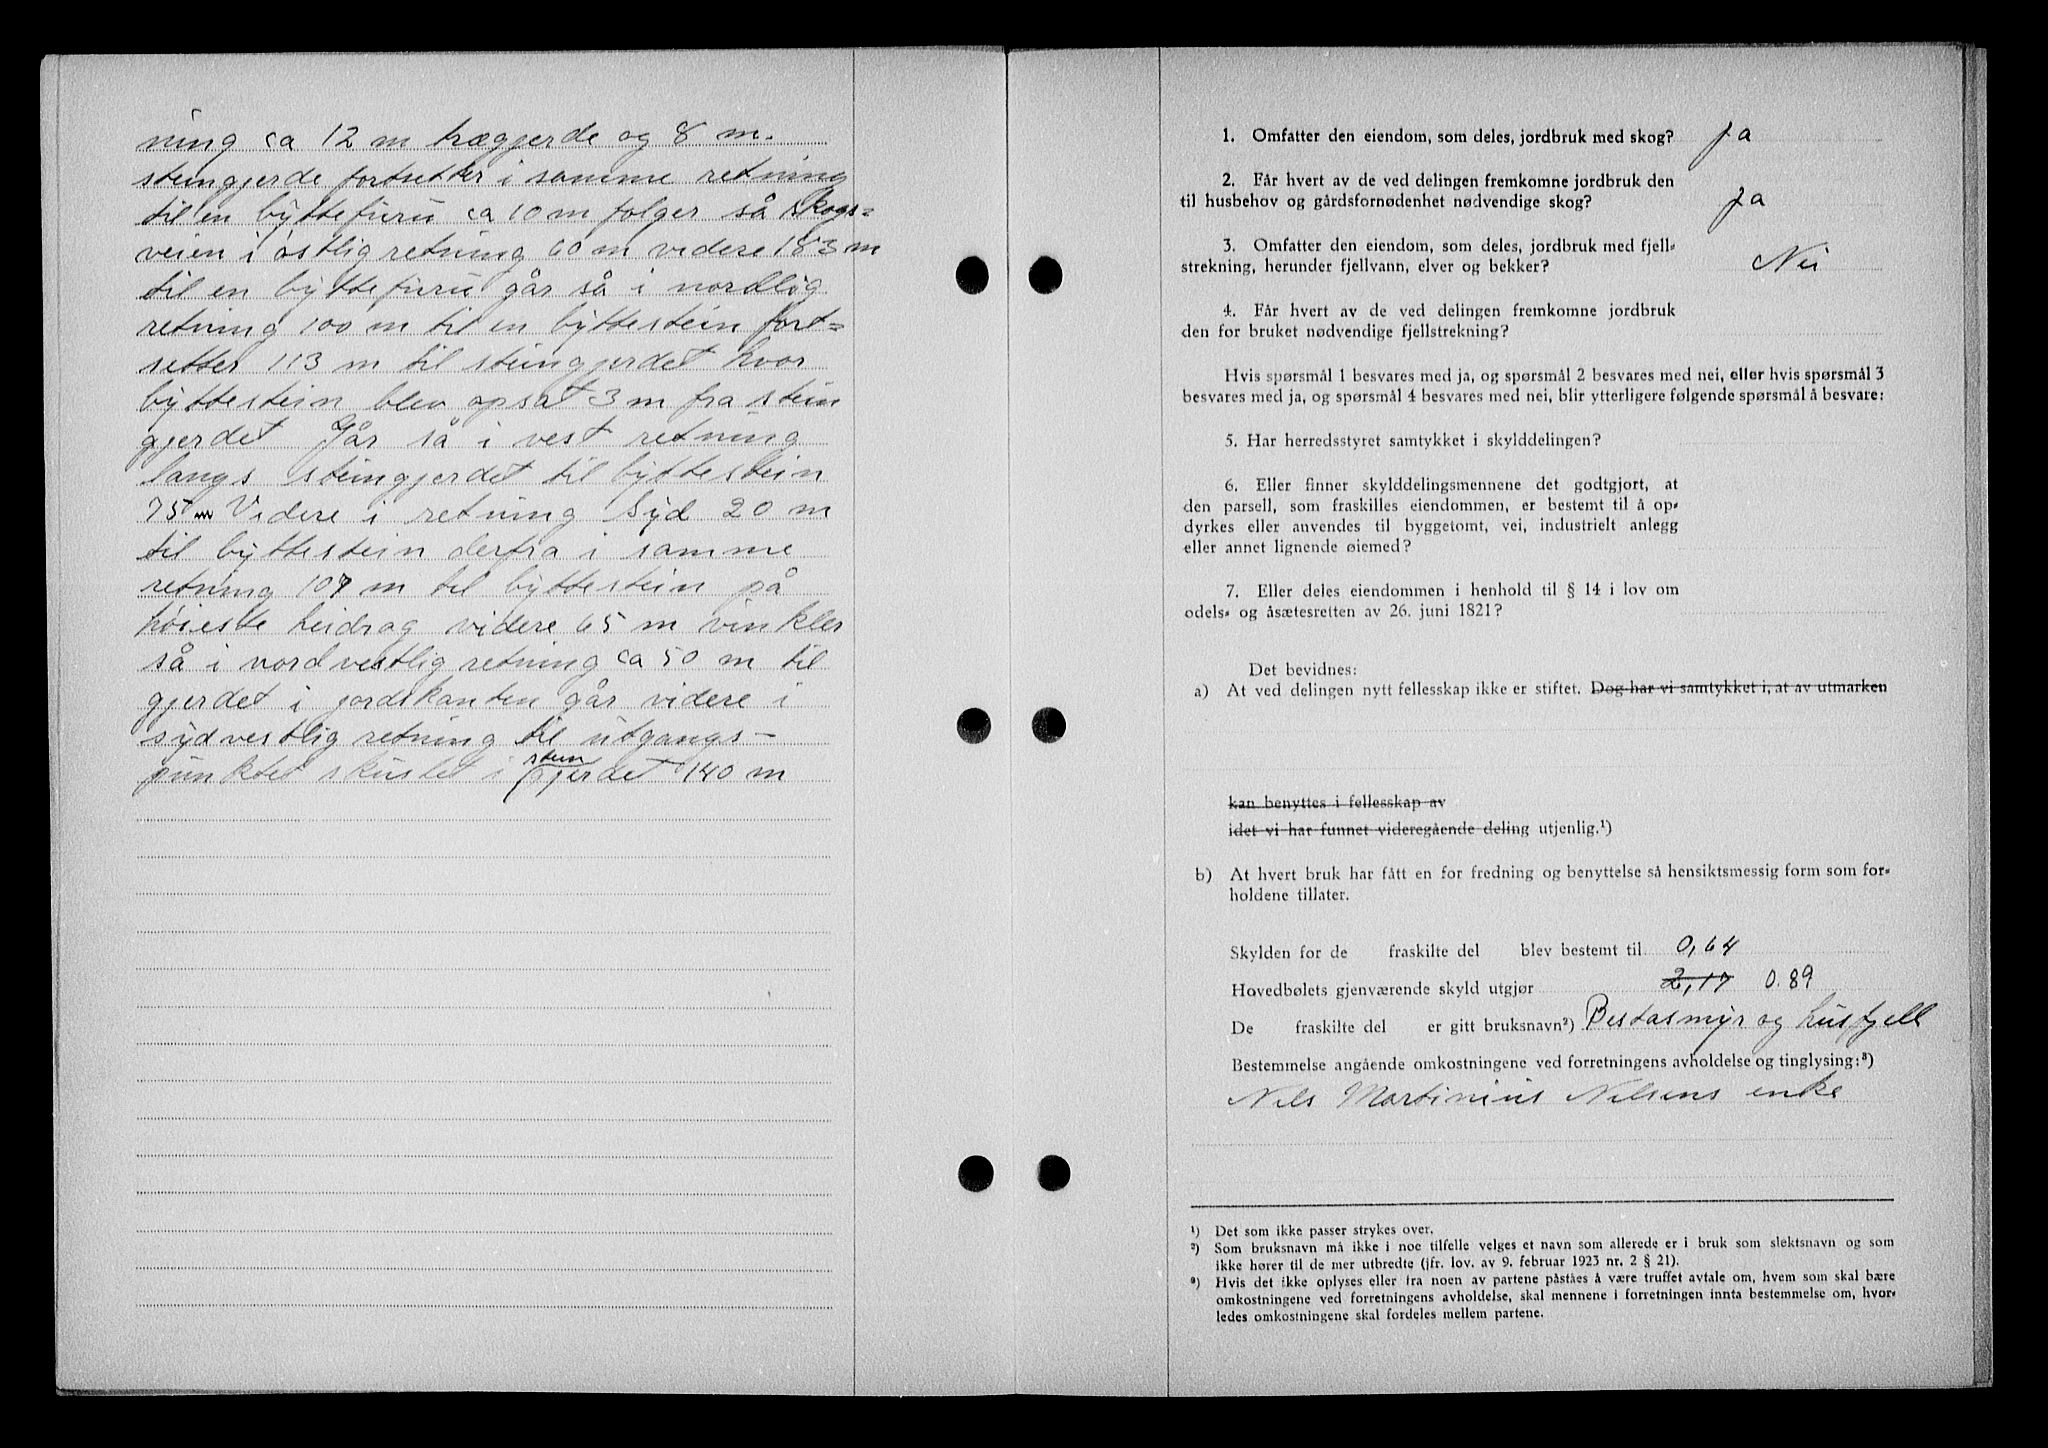 ning ca 12 m trægjerde og 8 m.
steingjerde fortsetter i samme retning
til en byttefuru ca 10 m følger så skogs=
veien i østlig retning 60 m videre 183 m
til en byttefuru går så i nordlig
retning 100 m til en byttestein fort=
setter 113 m til steingjerdet hvor
byttestein blev opsat 3 m fra stein
gjerdet Går så i vest retning
langs steingjerdet til byttestein
75 m Videre i retning Syd 20 m
til byttestein derfra i samme
retning 107 m til byttestein på
høieste heidrag videre 65 m vinkler
så i nordvestlig retning ca 50 m til
gjerdet i jordskanten går videre i
sydvestlig retning til utgangs-
punktet skustet i steingjerdet 140 m
1. Omfatter den eiendom, som deles, jordbruk med skog? ja
2. Får hvert av de ved delingen fremkomne jordbruk den
til husbehov og gårdsfornødenhet nødvendige skog? ja
3. Omfatter den eiendom, som deles, jordbruk med fjell=
strekning, herunder fjellvann, elver og bekker? Nei
4. Får hvert av de ved delingen fremkomne jordbruk
den for bruket nødvendige fjellstrekning?
Hvis spørsmål 1 besvares med ja, og spørsmål 2 besvares med nei, eller hvis spørsmål 3
besvares med ja, og spørsmål 4 besvares med nei, blir ytterligere følgende spørsmål å besvare:
5. Har herredsstyret samtykket i skylddelingen?
6. Eller finner skylddelingsmennene det godtgjort, at
den parsell, som fraskilles eiendommen, er bestemt til å op=
dyrkes eller anvendes til byggetomt, vei, industrielt anlegg
eller annet lignende øiemed?
7. Eller deles eiendommen i henhold til § 14 i lov om
odels= og åsætesretten av 26. juni 1821?
Det bevidnes:
a) At ved delingen nytt fellesskap ikke er stiftet. Dog har vi samtykket i, at av utmarken
kan benyttes i fellesskap av
idet vi har funnet videregående deling utjenlig.¹)
b) At hvert bruk har fått en for fredning og benyttelse så hensiktsmessig form som for=
holdene tillater.
Skylden for de fraskilte del blev bestemt til 0,64
Hovedbølets gjenværende skyld utgjør 2,17 0.89
De fraskilte del er gitt bruksnavn²) Bestasmyr og husfjell
Bestemmelse angående omkostningene ved forretningens avholdelse og tinglysing:³)
Nils Martinius Nilsens enke
¹) Det som ikke passer strykes over.
²) Som bruksnavn må ikke i noe tilfelle velges et navn som allerede er i bruk som slektsnavn og som
ikke hører til de mer utbredte (jfr. lov. av 9. februar 1923 nr. 2 § 21).
³) Hvis det ikke oplyses eller fra noen av partene påståes å være truffet avtale om, hvem som skal bære
omkostningene ved forretningens avholdelse, skal mennene i forretningen innta bestemmelse om, hvor=
ledes omkostningene skal fordeles mellem partene.